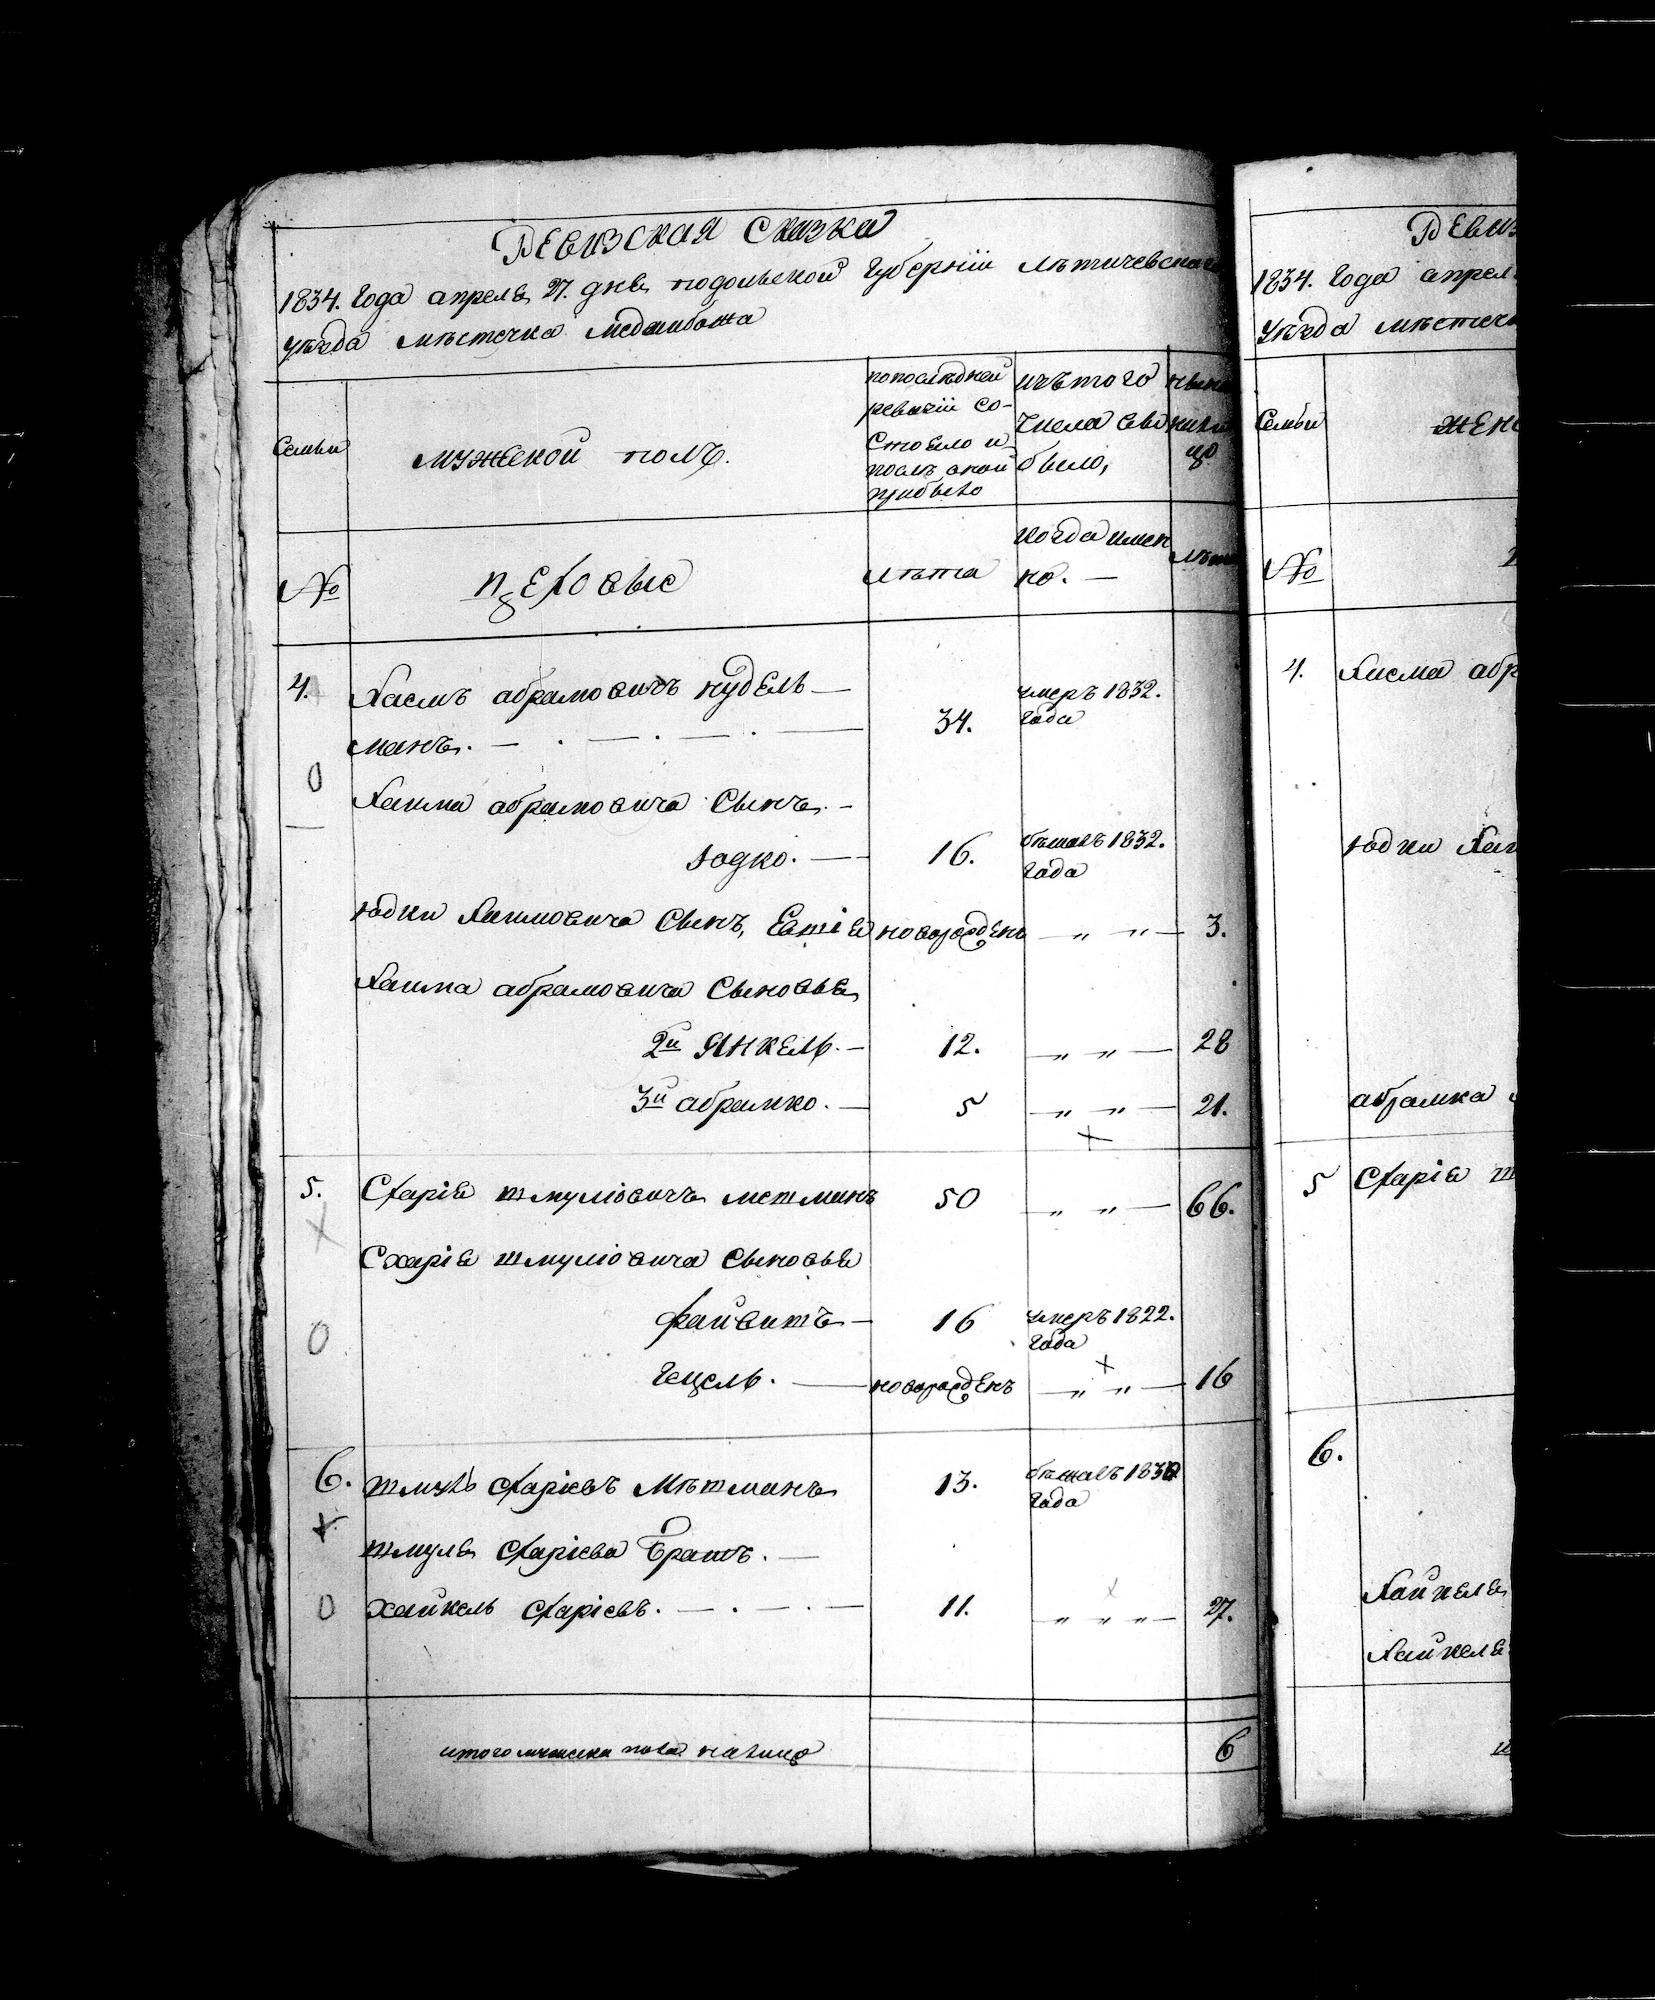 Ревизская Сказка
1834. Года апреля 27. дня подольской Губернiи Лѣтичевскаго
уѣзда мѣстечка Меджибожа
Семьи
мужеской полъ.
попослѣдней
ревизiи со-
стояло и
послѣ оной
прибыло
изъ того
числа вы
было,
№
цеховые
лѣта
когда имен
но. —
4.
Хаемъ абрамовичъ нудель—
манъ. — . — . — . —
34.
умеръ 1832.
Года
Хаима абрамовича Сынъ. —
Юдко. — —
16.
бѣжалъ 1832.
Года
Юдки Хаимовича Сынъ, новорожденъ — „ „ — 3.
Хаима абрамовича Сыновья
2й Янкель. — 12. — „ „ — 28
3й абрамко. — 5 — „ „ — 21.
5. Схарiя шмулiовичъ метманъ 50 — „ „ — 66.
Схарiя шмулiовича Сыновья
файвишъ — 16 умеръ 1822.
Года
Гецель. — новорожденъ — „ „ — 16
6. шмуль Схарiевъ Мѣтманъ 13. бѣжалъ 1830
Года
шмуля Схарiева Братъ. —
хайкель Схарiевъ. — . — . — 11. — „ „ „ — 27.
итого мужеска пола налицо 6
Ревиз
1834. Года апрел
уѣзда мѣстечк
Семьи
жен
№
4. Хаема абр
Юдки Хаи
абрамка
5 Схарiя ш
6.
Хайкеля
Хайкеля